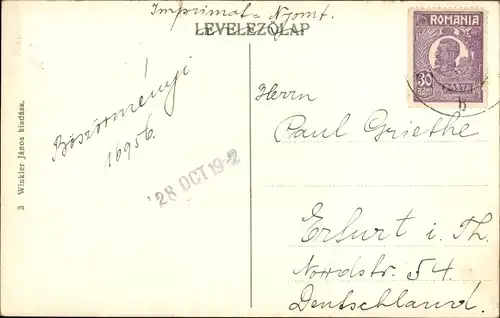 Imprimat = Nyomt.
LEVELEZŐLAP
ROMANIA
30
BANI
Herrn
Paul Griethe
Böszörményi
16956.
28 OCT 19-2
Erfurt i. Th.
Nordstr. 54.
Deutschland.
3 Winkler János kiadása.